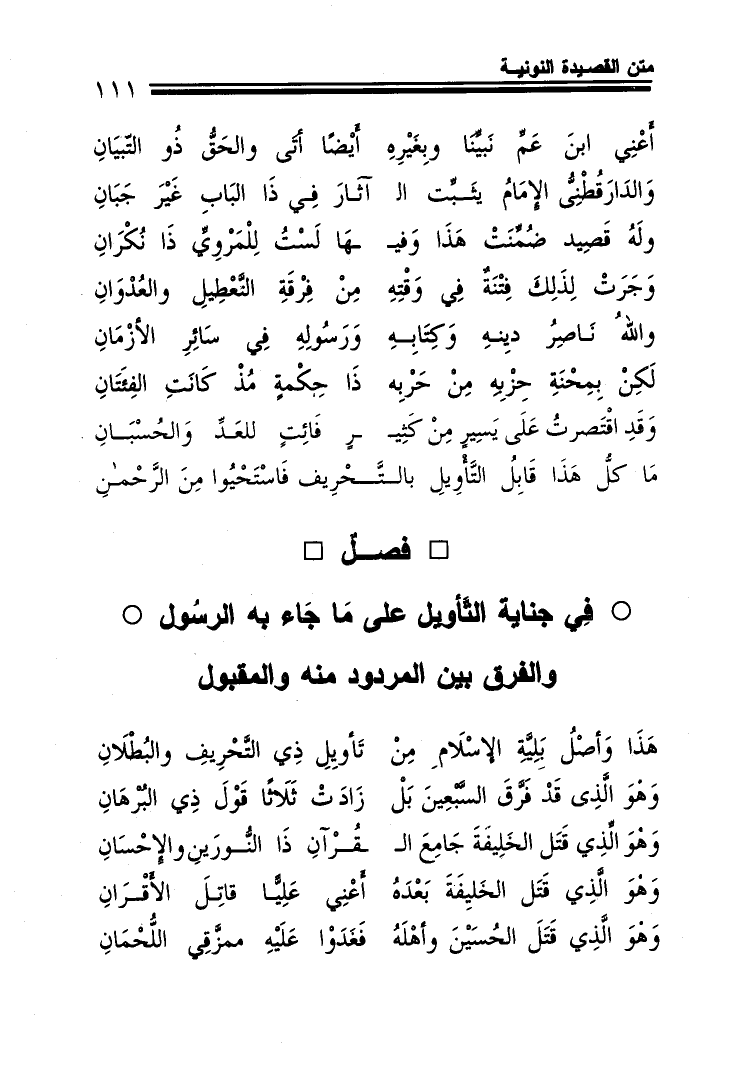 متن القصيدة النونية
١١١
أَعْنِي ابنَ عَمِّ نَبِيِّنَا وبِغَيْرِهِ أَيْضًا أتَى والحَقُّ ذُو التِّبيَانِ
وَالدارَقُطْنِىُّ الإِمَامُ يثَبِّت الـ آثارَ فِي ذَا البَابِ غَيْرَ جَبَانِ
ولَهُ قَصِيد ضُمِّنَتْ هَذَا وَفيـ ـهَا لَسْتُ لِلْمَرْوِيِّ ذَا نُكْرَانِ
وَجَرَتْ لِذَلِكَ فِتْنَةٌ فِي وَقْتِهِ مِنْ فِرْقَةِ التَّعْطِيلِ والعُدْوَانِ
واللهُ نَاصِرُ دينِهِ وَكِتَابِهِ وَرَسُولِهِ فِي سَائِرِ الأزْمَانِ
لَكِنْ بِمِحْنَةِ حِزْبِهِ مِنْ حَرْبِه ذَا حِكْمةٍ مُذْ كَانَتِ الفِئَتَانِ
وَقَدِ اقْتَصرتُ عَلَى يَسِيرٍ مِنْ كَثِيـ ـرٍ فَائِتٍ للعَدِّ وَالحُسْبَـانِ
مَا كلُّ هَذَا قَابِلُ التَّأْوِيلِ بالـتَّـحْرِيف فَاسْتَحْيُوا مِنَ الرَّحْمـٰنِ
□ فصـلٌ □
○ فِي جناية التَّأويل على مَا جَاء به الرسُول ○
والفرق بين المردود منه والمقبول
هَذَا وَأصْلُ بَلِيَّةِ الإسْلَامِ مِنْ تَأوِيلِ ذِي التَّحْرِيفِ والبُطْلَانِ
وَهْوَ الَّذِى قَدْ فَرَّقَ السَّبْعِينَ بَلْ زَادَتْ ثَلَاثًا قَوْلَ ذِي البُرْهَانِ
وَهْوَ الَّذِي قَتَل الخَلِيفَةَ جَامِعَ الـ ـقُرْآنِ ذَا النُّورَينِ والإحْسَانِ
وَهْوَ الَّذِي قَتَل الخَلِيفَةَ بَعْدَهُ أَعْنِي عَلِيًّا قاتِلَ الأَقْرَانِ
وَهْوَ الَّذِي قَتَلَ الحُسَيْنَ وأهْلَهُ فَغَدَوْا عَلَيْهِ ممزَّقِي اللُّحْمَانِ